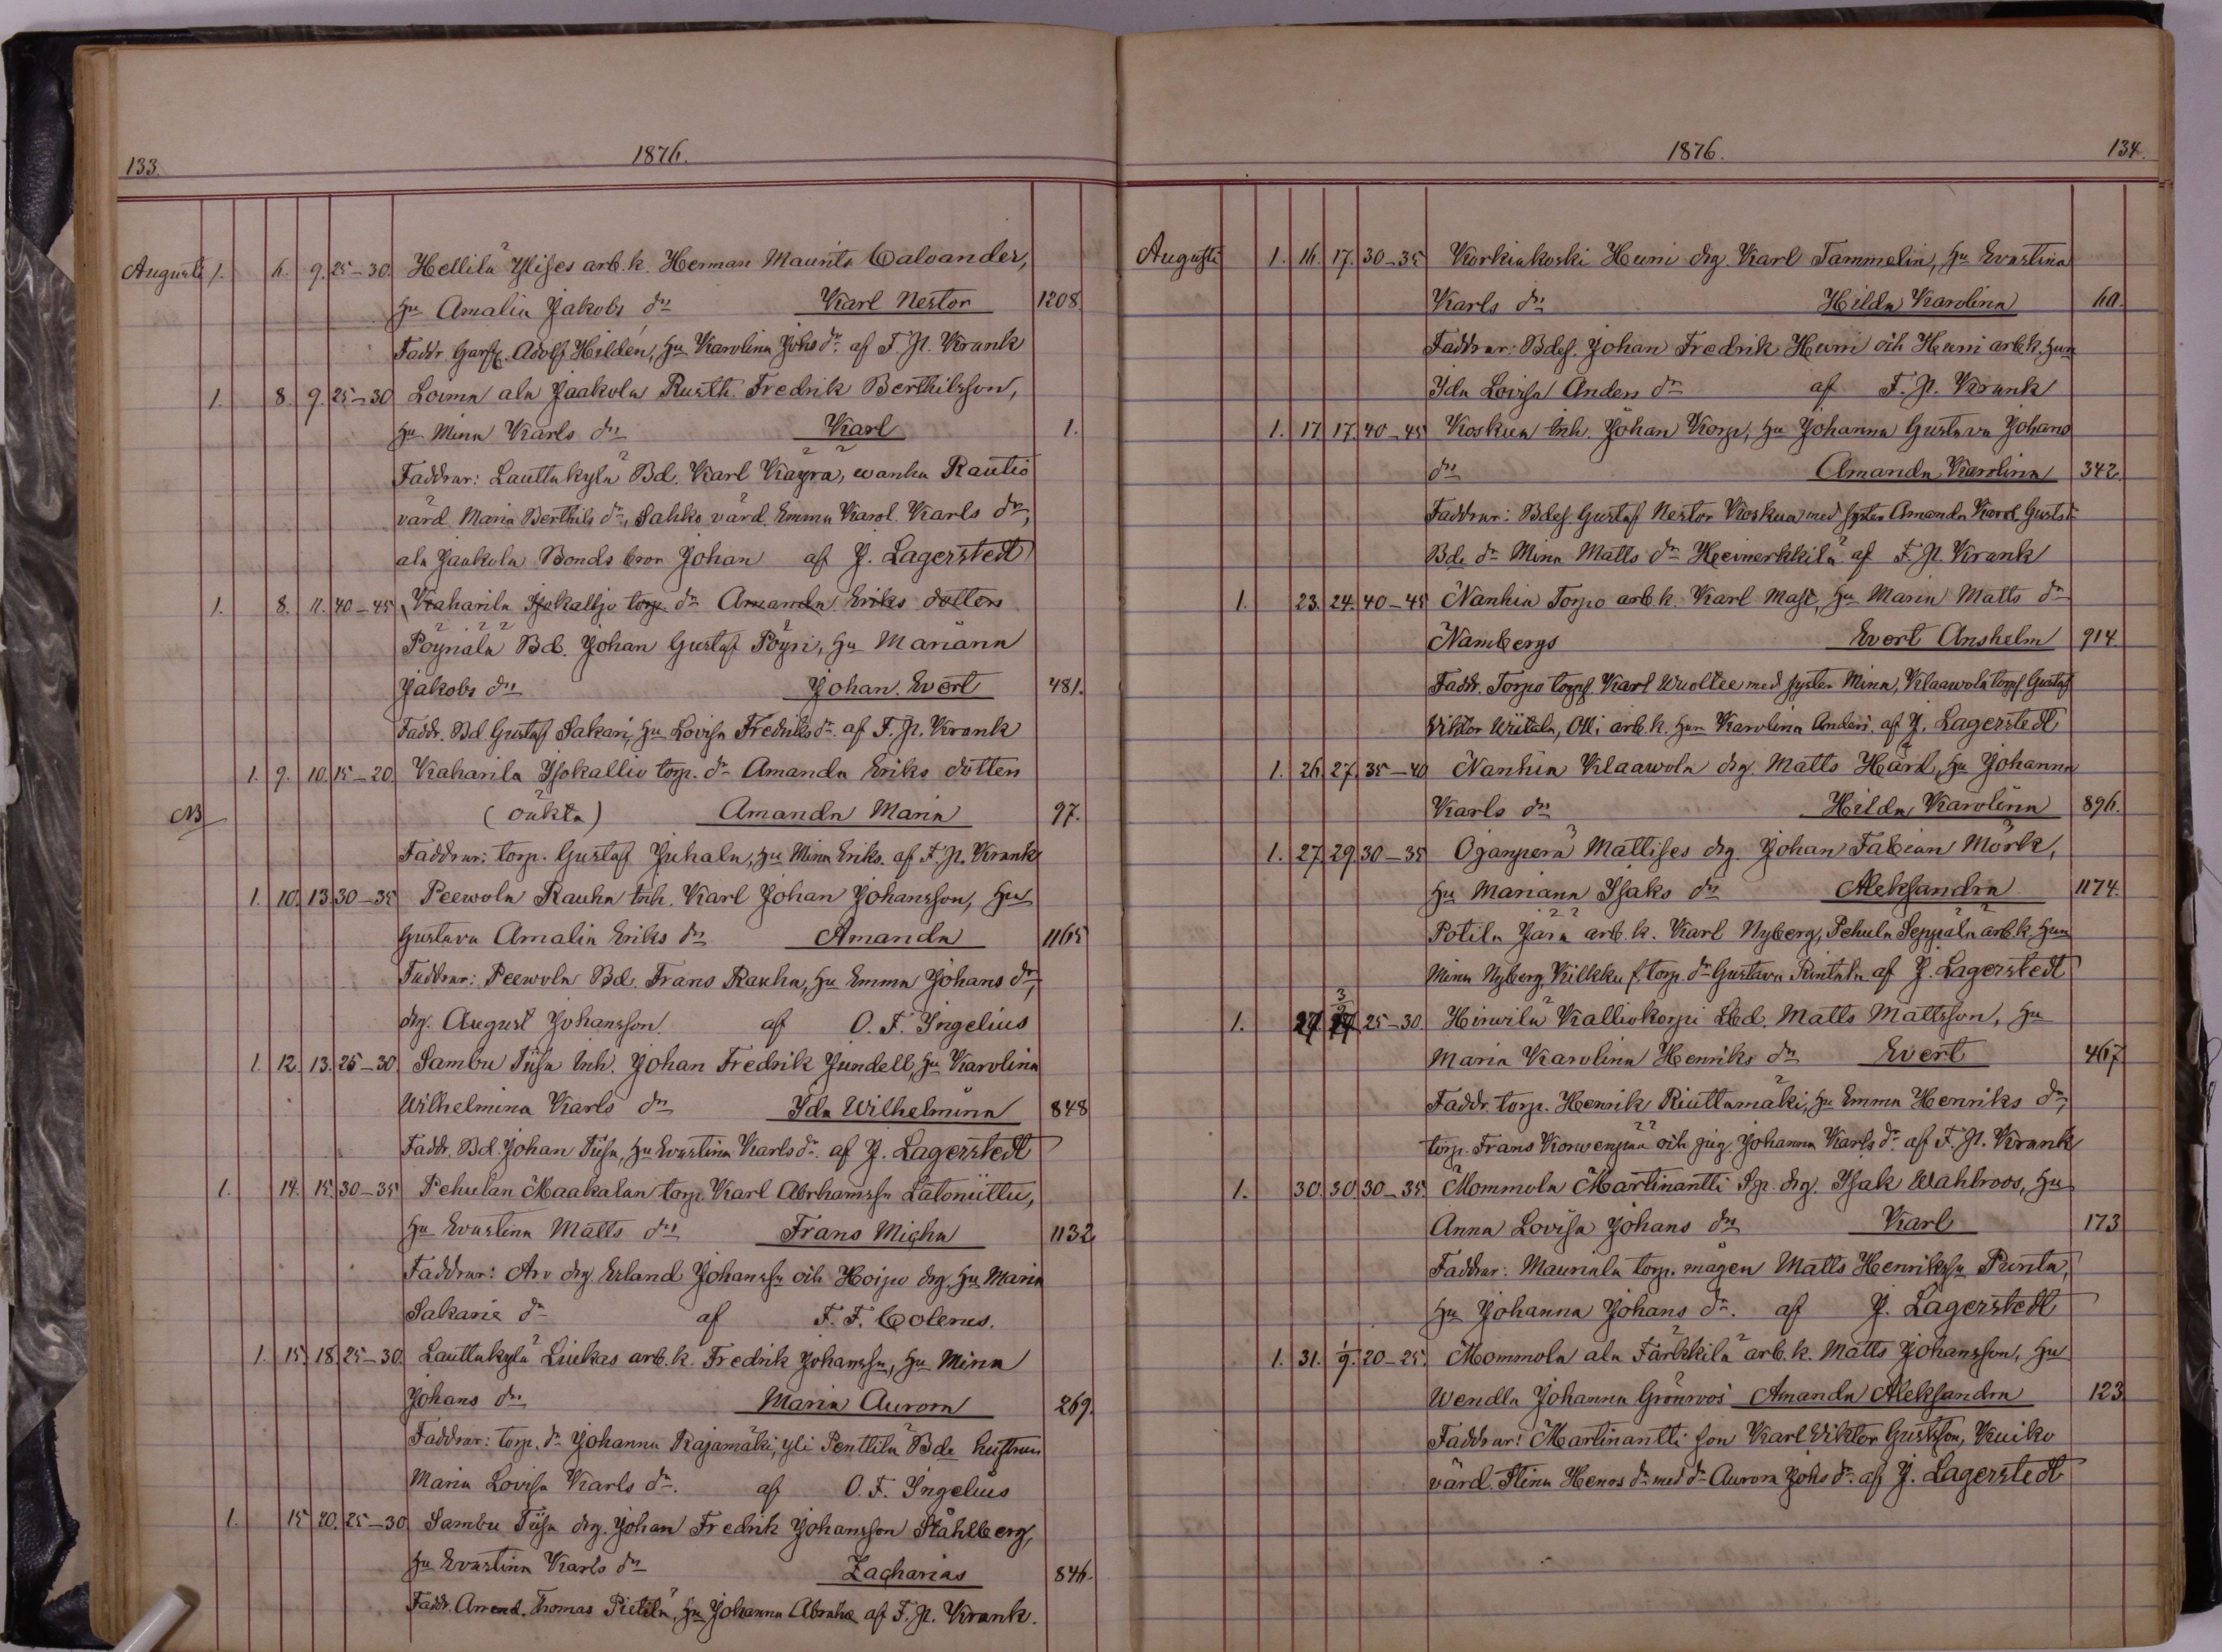 133.
1876.
Augusti 1. 6. 9. 25-30. Hellilä Ylises arb. k. Herman Maurits Calvander,
Hu Amalia Jakobs dr Karl Nestor 1208.
Faddr. Garfv. Adolf Hildén, Hu Karolina Johs dr. af F. H. Krank
1. 8. 9. 25-30 Loima ala Jaakola Rusth. Fredrik Berthilsson,
Hu Mina Karls dr Karl 1.
Faddrar: Lauttakylä Bd. Karl Käyrä, wanha Rautio
värd. Maria Berthils dr, Sahko värd. Emma Karol. Karls dr,
ala Jaakola Bonds bror Johan af J. Lagerstedt
1. 8. 11. 40-45 Kaharila Isokallio torp. dr Amanda Eriks dotter
Pöynälä Bd. Johan Gustaf Pöyri, Hu Mariana
Jakobs dr Johan Evert 481.
Faddr. Bd Gustaf Sakari, Hu Lovisa Fredriks dr af F. H. Krank
1. 9. 10. 15-20 Kaharila Isokallio torp. dr Amanda Eriks dotter
NB (oäkta) Amanda Maria 97.
Faddrar: torp. Gustaf Juhala, Hu Mina Eriks. af F. H. Krank
1. 10. 13. 30-35 Peewola Rauha Inh. Karl Johan Johansson, Hu
Gustava Amalia Eriks dr Amanda 1165
Faddrar: Peewola Bd. Frans Rauha, Hu Emma Johans dr,
drg. August Johansson af O. F. Ingelius
1. 12. 13. 25-30 Sambu Tiisa Inh. Johan Fredrik Jundell, Hu Karolina
Wilhelmina Karls dr Ida Wilhelmina 848
Faddr. Bd. Johan Tiisa, Hu Evastina Karls dr. af J. Lagerstedt
1. 14. 15. 30-35 Pehulan Maakalan torp. Karl Abrhamssn Latoniittu,
Hu Evastina Matts dr Frans Micha 1132
Faddrar: Arv drg. Erland Johanssn och Hoipo drg. Hu Maria
Sakarie dr af F. F. Colerus.
1. 15. 18. 25-30. Lauttakylä Liukas arb. k. Fredrik Johanssn, Hu Mina
Johans dr Maria Aurora 269.
Faddrar: torp. dr Johanna Rajamäki, yli Penttilä Bde hustrun
Maria Lovisa Karls dr. af O. F. Ingelius
1. 15 20. 25-30 Sambu Tiisa drg. Johan Fredrik Johansson Ståhlberg,
Hu Evastina Karls dr Zacharias 846.
Faddr. Arrend. Thomas Pietilä, Hu Johanna Abrahs af F. H. Krank.
1876.
134.
Augusti 1. 16. 17. 30-35 Korkiakoski Huni drg. Karl Tammelin, Hu Evastina
Karls dr Hilda Karolina 60.
Faddrar: Bdes. Johan Fredrik Huni och Huni arb. k. Hun
Ida Lovisa Anders dr af F. H. Krank
1. 17 17. 40-45 Koskua Inh. Johan Korp, Hu Johanna Gustava Johans
dr Amanda Karolina 342.
Faddrar: Bdes. Gustaf Nestor Koskua med syster Amanda Karol. Gusts.
Bde dr Mina Matts dr Heinerkkilä af F. H. Krank
1. 23. 24. 40-45 Nanhia Torpo arb. k. Karl Mast, Hu Maria Matts dr
Nambergs Evert Anshelm 914.
Faddr. Torpo torps Karl Wuoltee med syster Mina, Klaawola torps Gustaf
Viktor Wiitala, Olli arb. k. Hun Karolina Anders. af J. Lagerstedt
1. 26. 27. 35-40 Nanhia Klaawola drg. Matts Härd, Hu Johanna
Karls dr Hilda Karolina 896.
1. 27 29. 30-35 Ojanperä Mattises drg. Johan Fabian Mörk,
Hu Mariana Isaks dr Aleksandra 1174.
Potila Jära arb. k. Karl Nyberg, Pehula Seppälä arb. k. Hun
Mina Nyberg, Kilkku f. torp. dr Gustava Rintala af J. Lagerstedt
1. 27. 3/9 25-30 Hirwilä Kalliokorpi Lbd. Matts Mattsson, Hu
Maria Karolina Henriks dr Evert 467
Faddr. torp. Henrik Riuttamäki, Hu Emma Henriks dr,
torp. Frans Korwenpää och pig. Johanna Karls dr af F. H. Krank
1. 30. 30. 30-35. Mommola Martinantti Sp. drg. Isak Wahlroos, Hu
Anna Lovisa Johans dr Karl 173
Faddrar: Mauriala torp. mågen Matts Henrikssn Punta,
Hu Johanna Johans dr. af J. Lagerstedt
1. 31. 1/9. 20-25. Mommola ala Färkkilä arb. k. Matts Johansson, Hu
Wendla Johanna Grönroos Amanda Aleksandra 123
Faddrar: Martinantti son Karl Viktor Gustsson, Kuiko
värd. Stina Henrs dr med dr Aurora Johs dr. af J. Lagerstedt